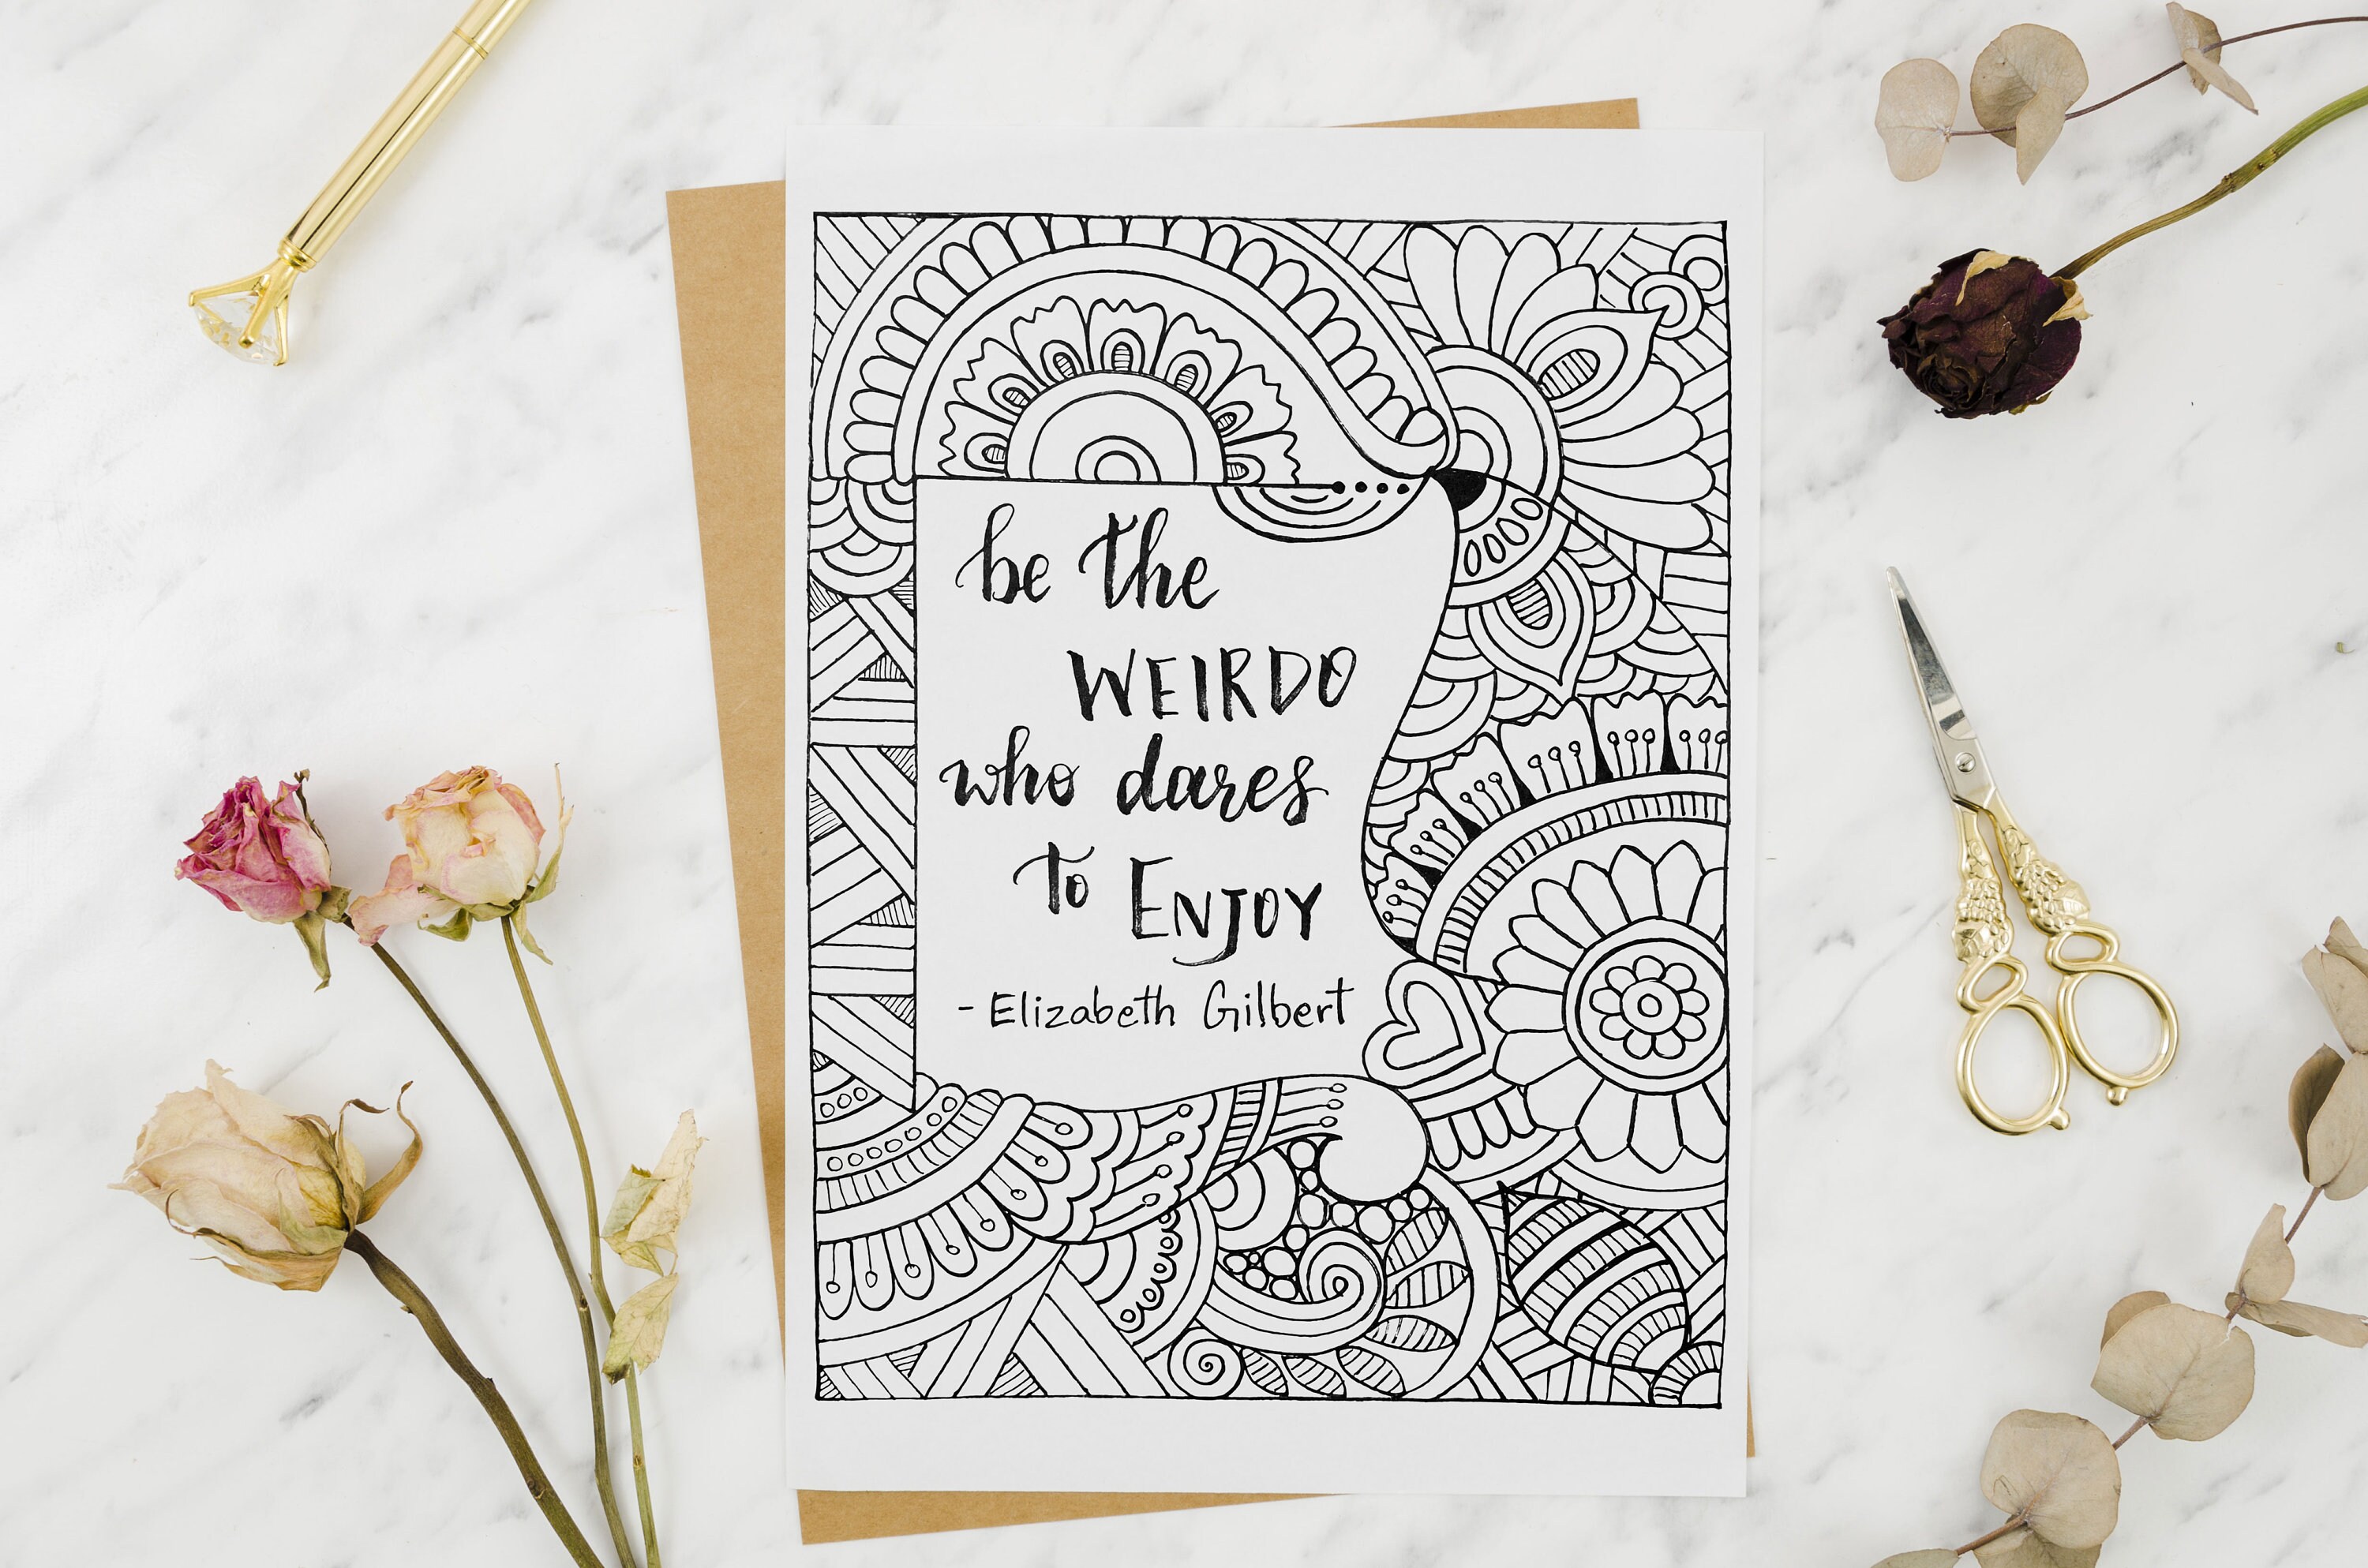 be the
WEIRDO
who dares
to ENJOY
- Elizabeth Gilbert